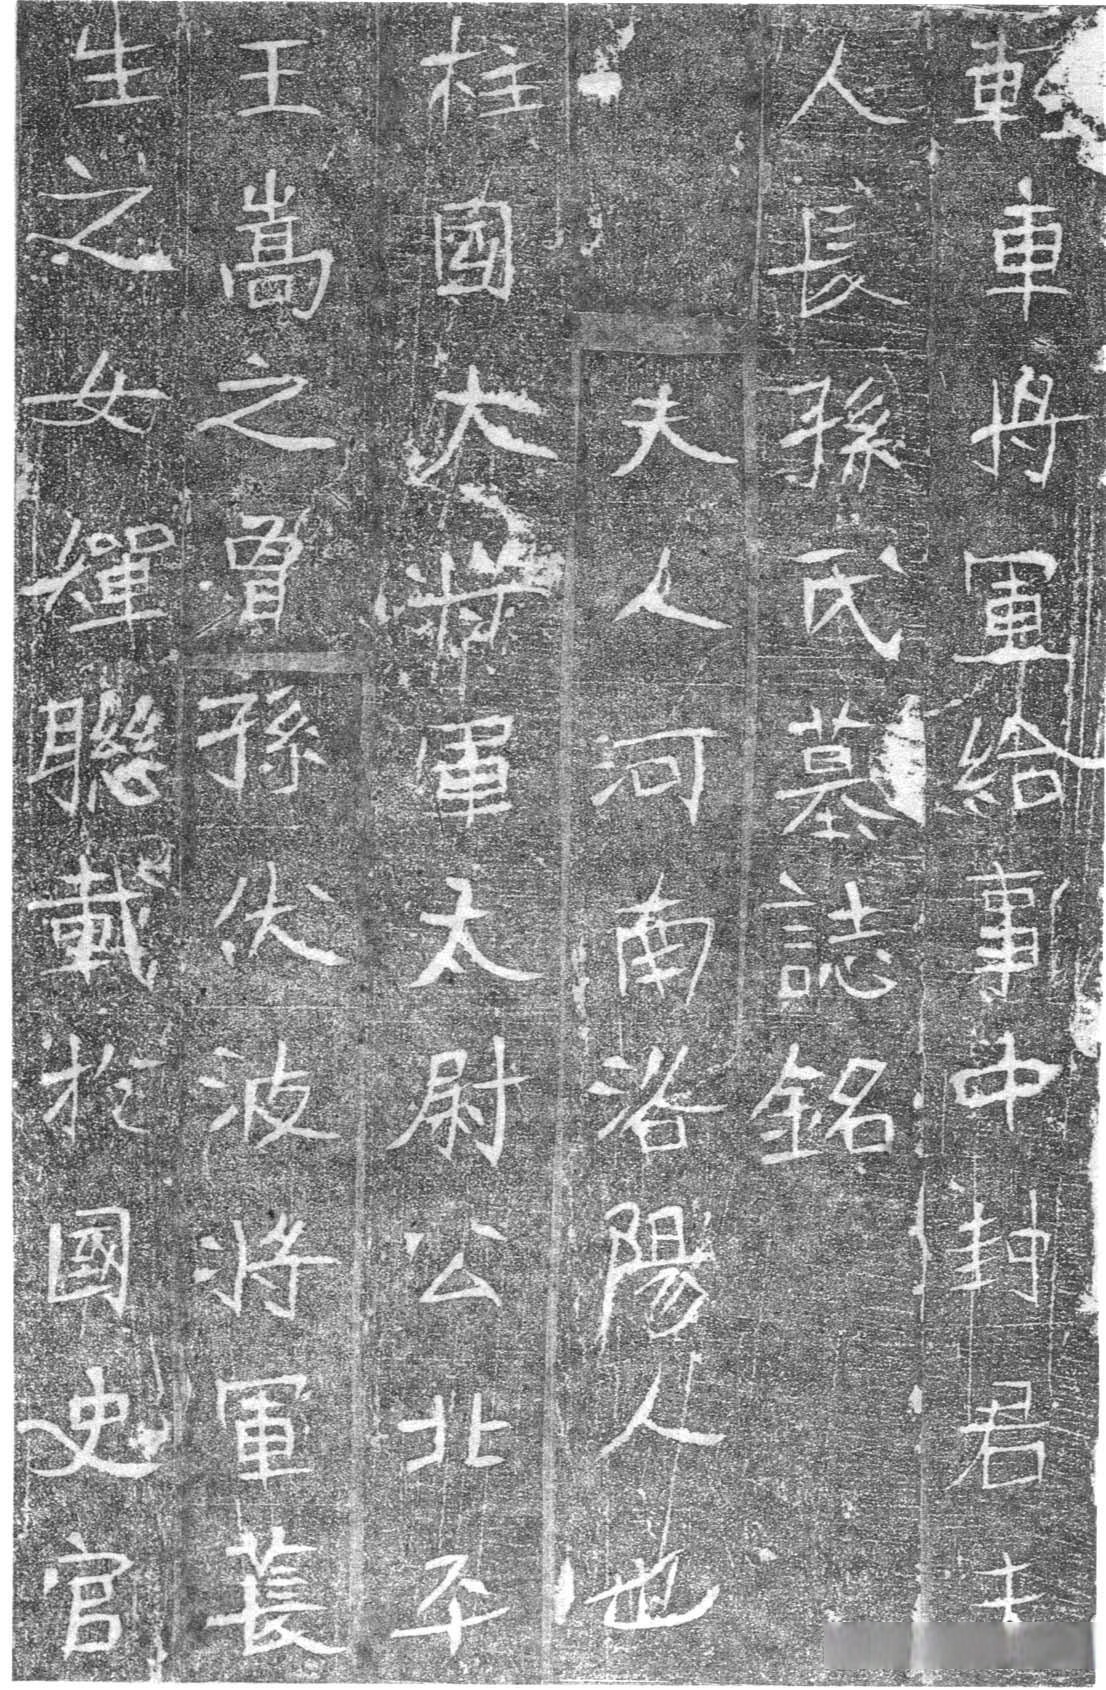 輕車將軍給事中封君夫
人長孫氏墓誌銘
夫人河南洛陽人也
柱國大將軍太尉公北平
王嵩之曾孫伏波將軍萇
生之女蟬聯載於國史官